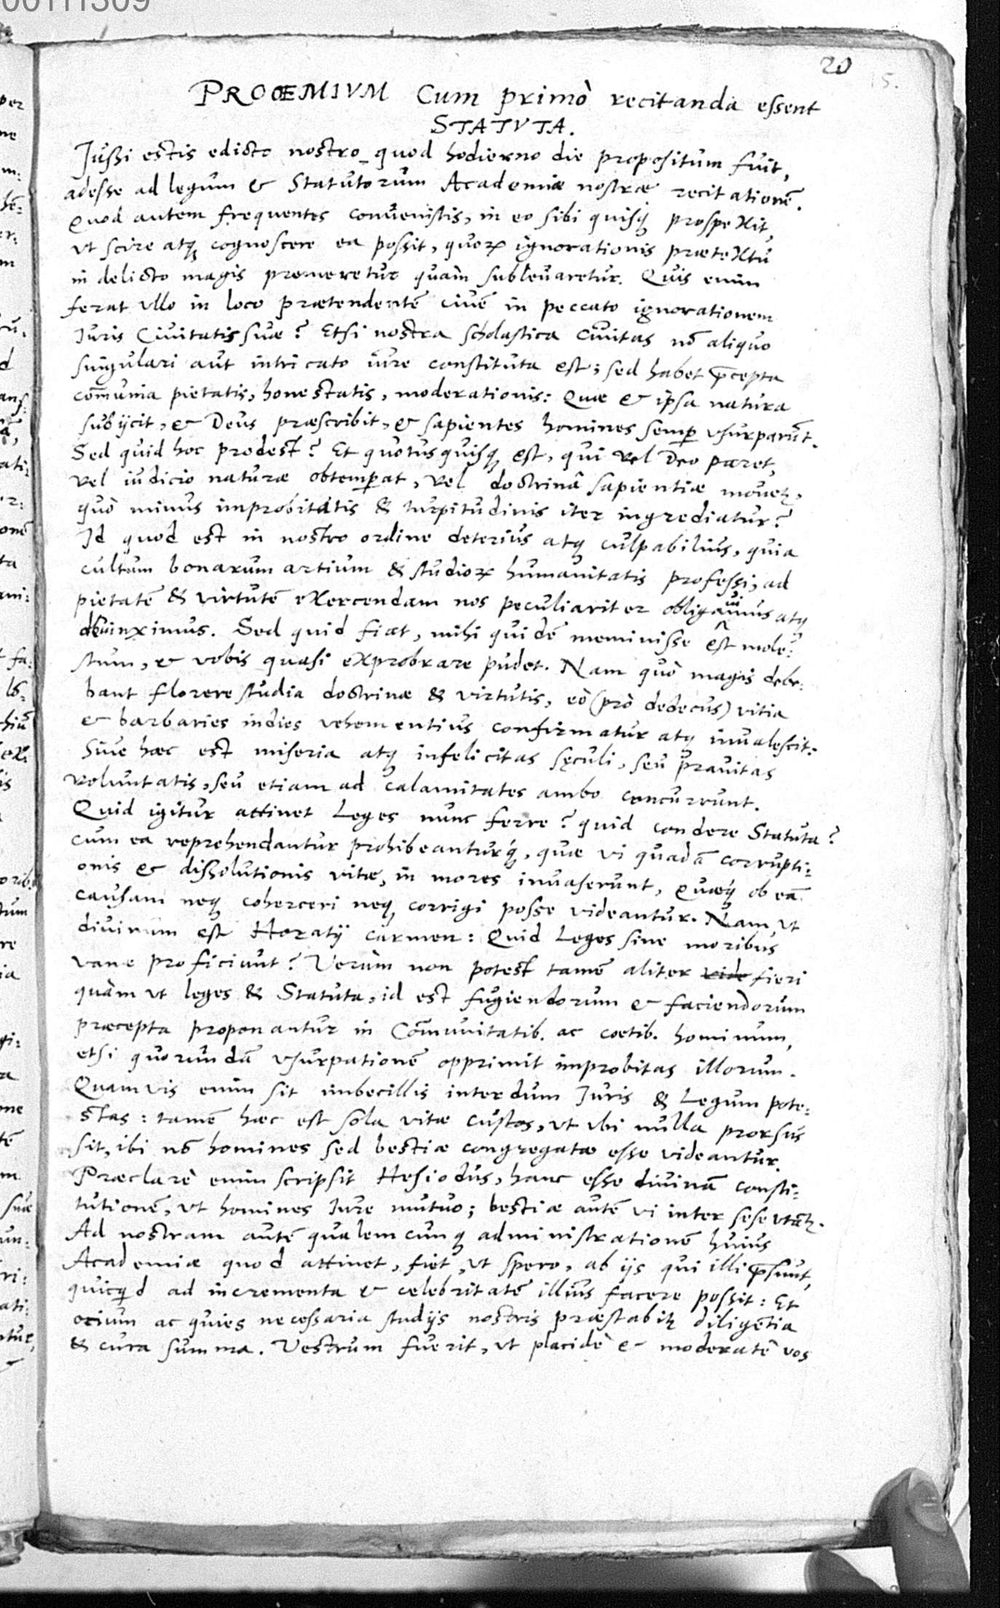 00111309
20
15.
PROOEMIVM Cum primò recitanda essent
STATVTA.
Jussi estis edicto nostro, quod hodierno die propositum fuit,
adesse ad legum & Statutorum Academiæ nostræ recitationẽ.
Quod autem frequentes convenistis, in eo sibi quisq; prospexit
vt scire atq; cognoscere ea possit, quorꝝ ignorationis prætextu
in delicto magis premeretur quàm subleuaretur. Quis enim
ferat vllo in loco prætendentẽ ciuẽ in peccato ignorationem
Juris Ciuitatis suæ? Etsi nostra scholastica Ciuitas nõ aliquo
singulari aut intricato iure constituta est; sed habet p̃cepta
com̃unia pietatis, honestatis, moderationis: Quæ & ipsa natura
subijcit, & Deus præscribit, & sapientes homines semꝑ vsurparũt.
Sed quid hoc prodest? Et quotusquisq; est, qui vel Deo paret,
vel iudicio naturæ obtemꝑat, vel doctrinâ sapientiæ mouetꝫ,
quò minus improbitatis & turpitudinis iter ingrediatur?
Id quod est in nostro ordine deterius atq; culpabilius, quia
cultum bonarum artium & studiorꝝ humanitatis professi, ad
pietatẽ & virtutẽ exercendam nos peculiariter obligauimus atq;
deuinximus. Sed quid fiat, mihi quidẽ meminisse est mole:
stum, & vobis quasi exprobrare pudet. Nam quò magis debe:
bant florere studia doctrinæ & virtutis, eò (prò dedecus) vitia
& barbaries indies vehementius confirmatur atq; inualescit:
Siue hæc est miseria atq; infelicitas sęculi, seu prauitas
voluntatis, seu etiam ad calamitates ambo concurrunt.
Quid igitur attinet Leges nunc ferre? quid condere Statuta?
cum ea reprehendantur prohibeanturq́;, quæ vi quadã corrupti:
onis & dissolutionis vitæ, in mores inuaserunt, quæq́; ob eã
causam neq; coherceri neq; corrigi posse videantur. Nam, vt
diuinum est Horatij carmen: Quid Leges sine moribus
vanæ proficiunt? Verùm non potest tamẽ aliter vide fieri
quàm vt leges & Statuta, id est fugiendorum & faciendorum
præcepta proponantur in Com̃unitatib. ac coetib. hominum,
etsi quorundã vsurpationẽ opprimit improbitas illorum.
Quamvis enim sit imbecillis interdum Juris & Legum pote:
stas: tamẽ hæc est sola vitæ custos, vt vbi nulla prorsus
sit, ibi nõ homines sed bestiæ congregatæ esse videantur.
Præclarè enim scripsit Hesiodus, hanc esse diuinã consti:
tutionẽ, vt homines Jure mutuo; bestiæ autẽ vi inter sese vtãtꝫ.
Ad nostram autẽ qualemcunq; administrationẽ huius
Academiæ quod attinet, fiet, vt spero, ab ijs qui illi p̃sunt,
quicq̃d ad incrementa & celebritatẽ illius facere possit: Et
ocium ac quies necessaria studijs nostris præstabitꝫ diligẽtia
& cura summa. Vestrum fuerit, vt placidè & moderatè vos